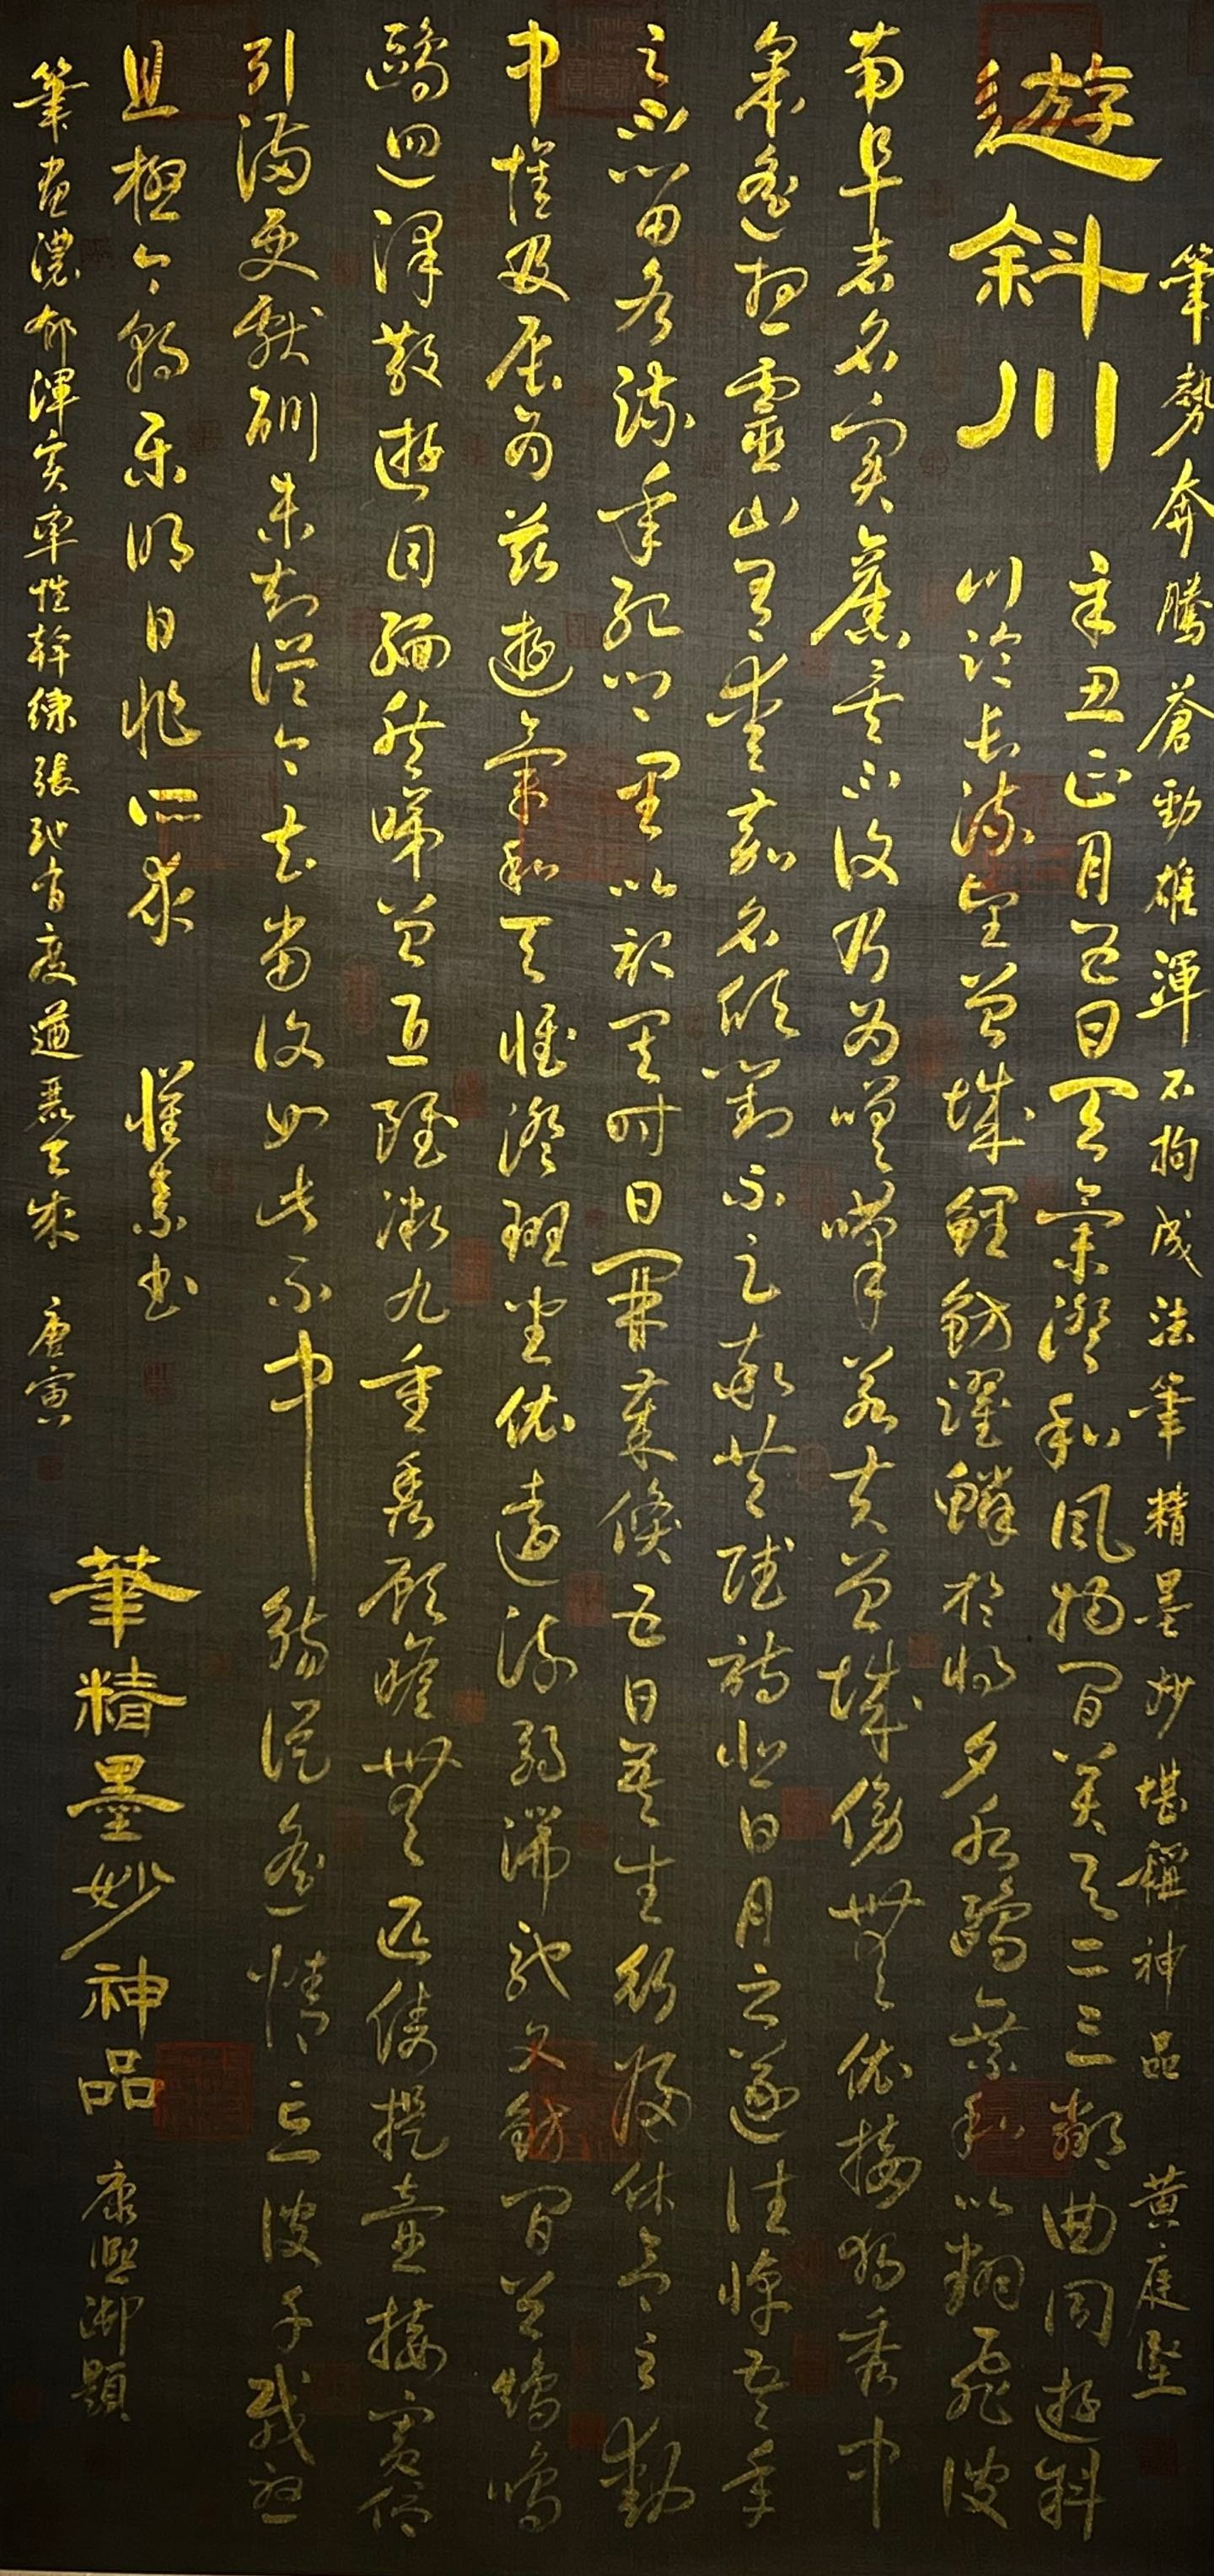 筆勢奔騰蒼勁雄渾不拘成法筆精墨妙堪稱神品 黄庭堅
遊斜川
辛丑正月五日天氣澄和風物閒美與二三鄰曲同遊斜
川臨長流望曾城鯉魴躍鱗於將夕水鷗乘和以翻飛彼
南阜者名實舊矣不復乃為嗟嘆若夫曾城傍無依接獨秀中
皋遙想靈山有愛嘉名欣對不足率共賦詩悲日月之遂往悼吾年
之不留各疏年紀鄉里以記其時日開歲倏五日吾生行歸休念之動
中懷及辰為茲遊氣和天惟澄班坐依遠流弱湍馳文魴閒谷矯鳴
鷗迴澤散遊目緬然睇曾丘雖微九重秀顧瞻無匹儔提壺接賓侶
引滿更獻酬未知從今去當復如此不中觴縱遙情忘彼千載憂
且極今朝樂明日非所求 懷素書
筆畫濃郁渾實率性幹練張弛有度遒麗天成 唐寅
筆精墨妙神品 康熙御題